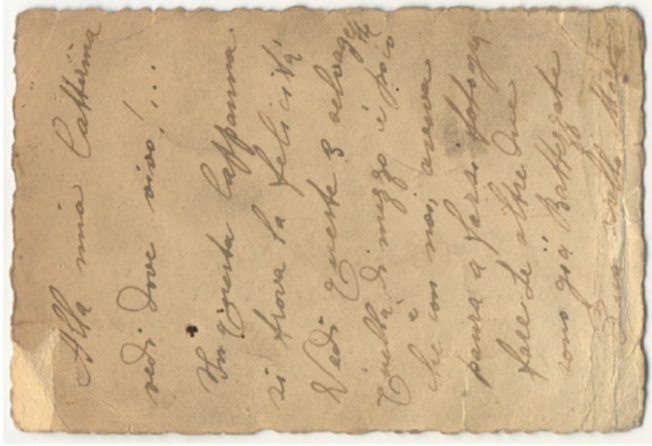 Alla mia Catterina
vedi dove vivo!...
In Questa Cappanna.
si trova la felicità
Vedi Queste 3
Quella di mezzo è poco
che è con noi, aveva
paura a farsi fotogra
fare Le altre Due
sono già Battezzate